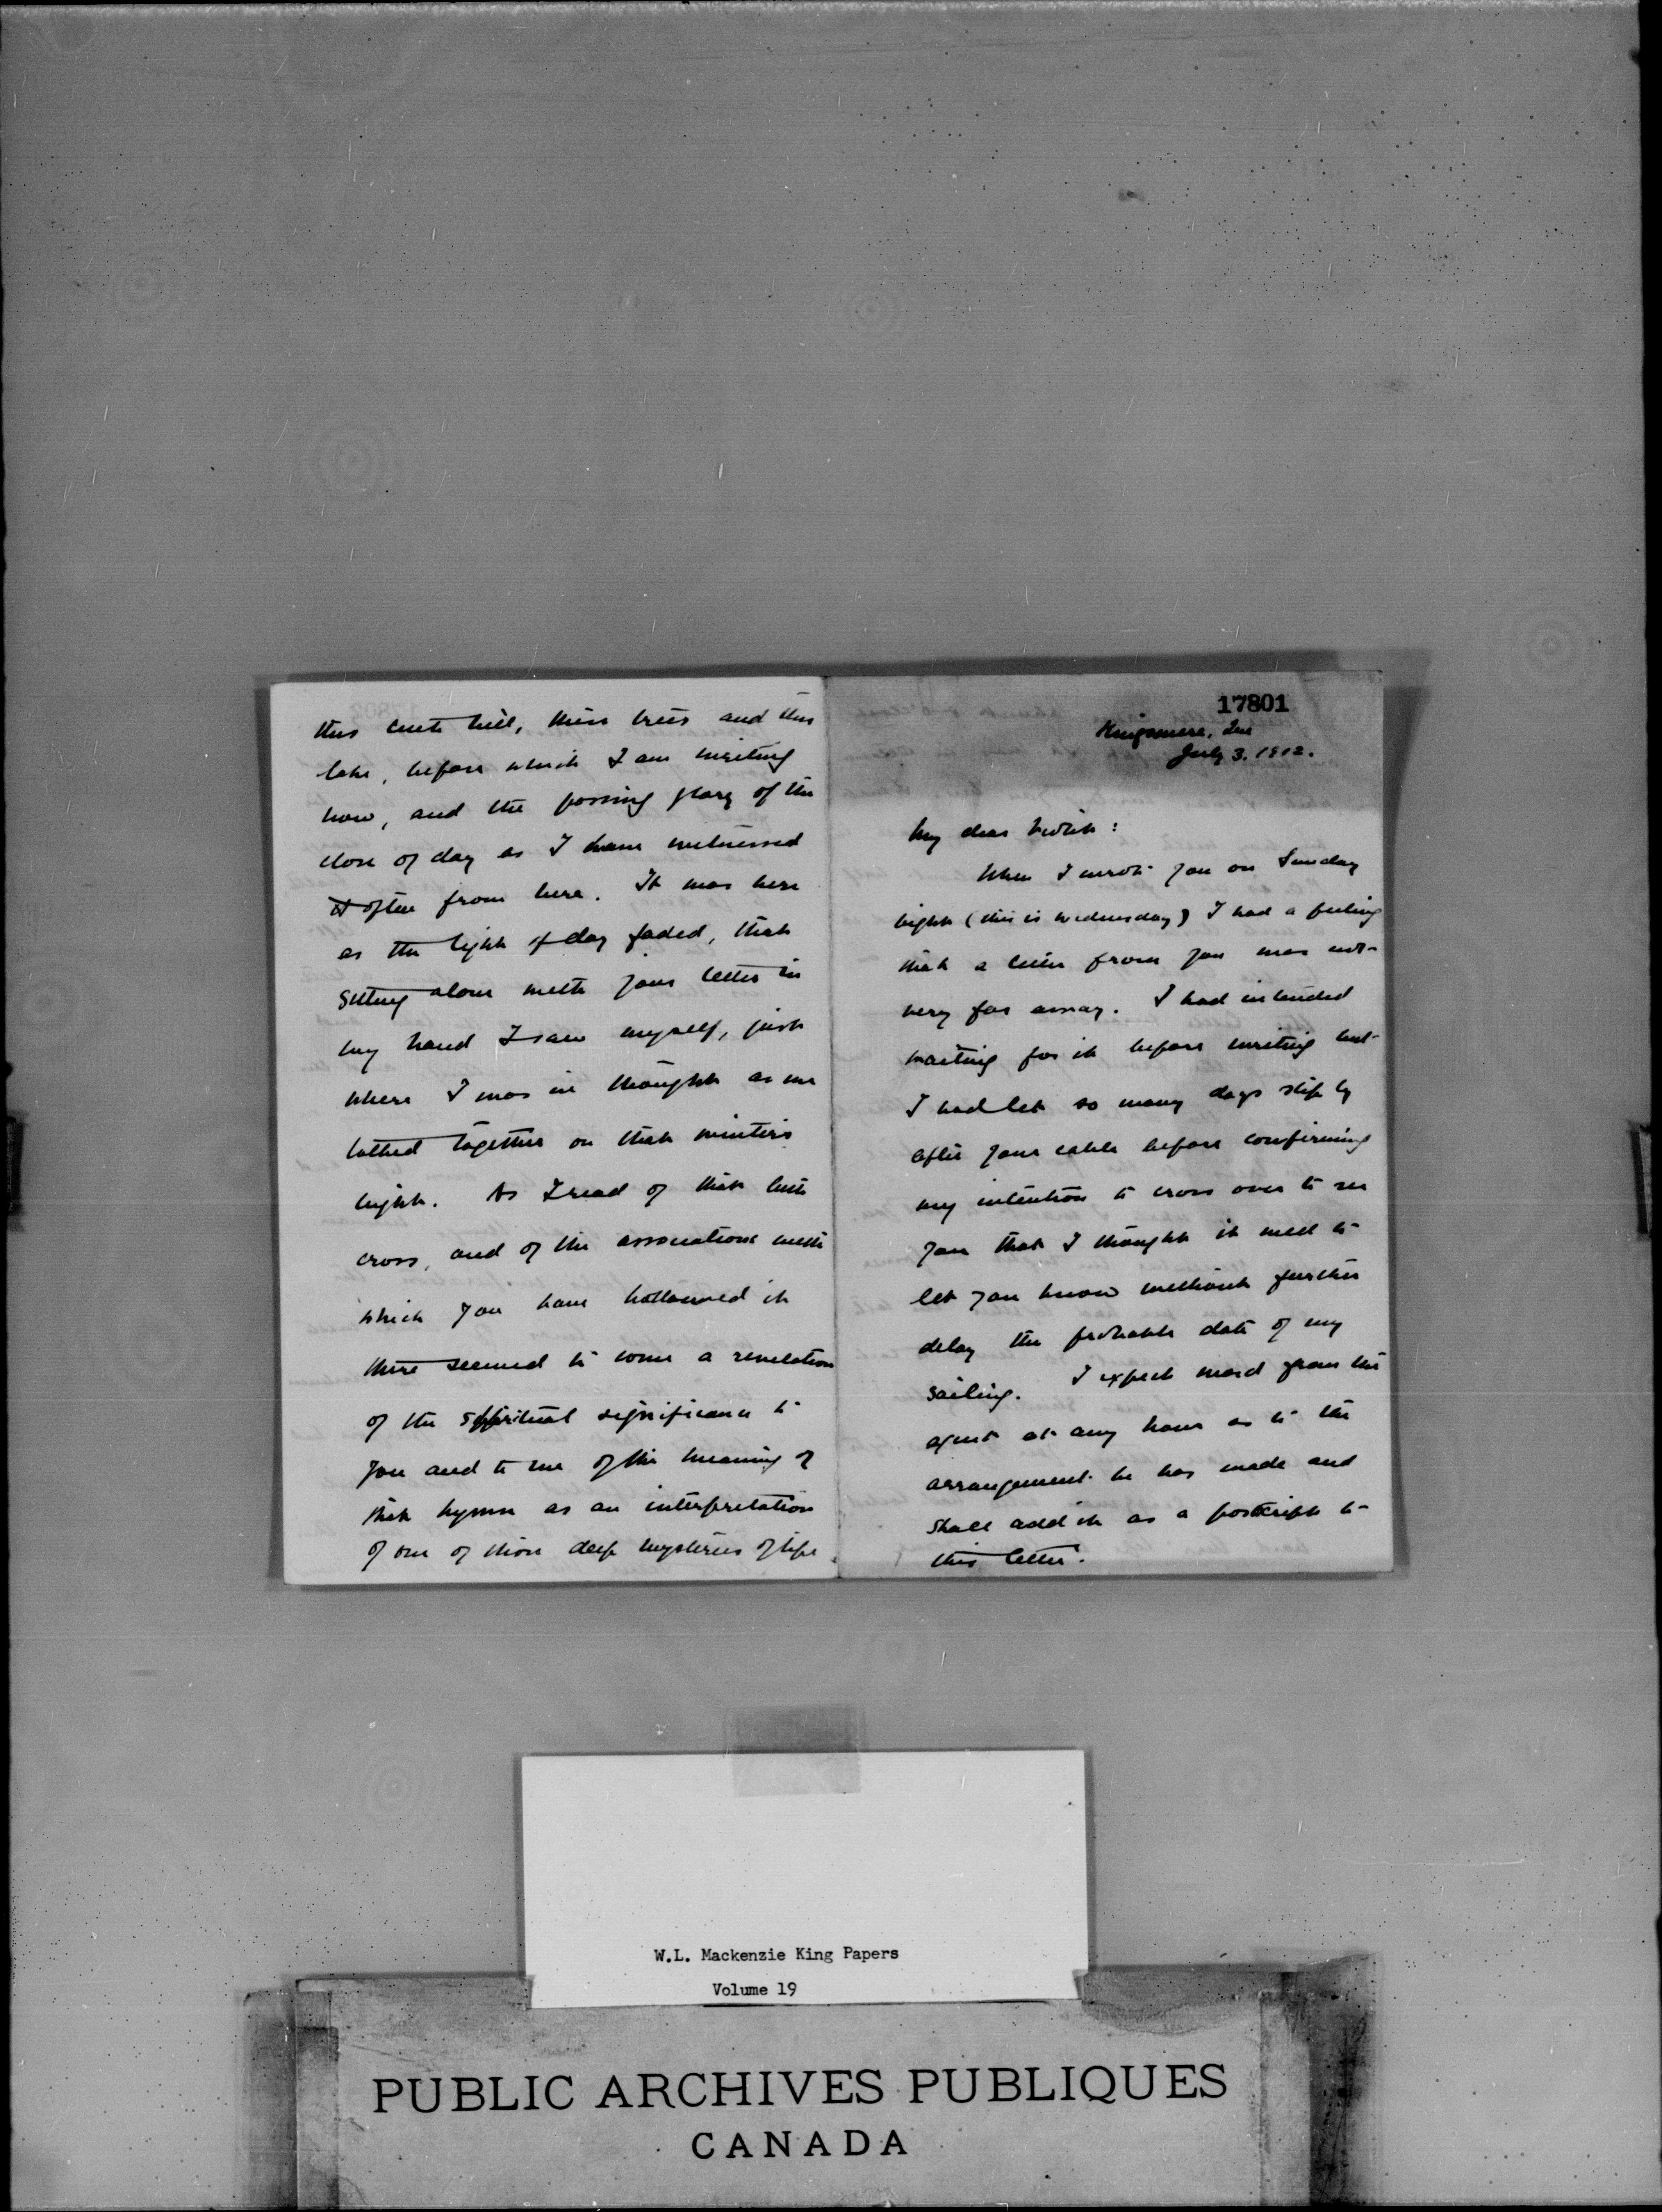 this little hill, these trees and this
lake, before which I am writing
now, and the passing glory of the
close of day as I have witnessed
it often from here. It was here
as the light of day faded, that
sitting alone with your letter in
my hand I saw myself, just
where I was in thought as we
talked together on that winter's
night. As I read of that little
cross, and of the associations with
which you have hallowed it
there seemed to come a revelation
of the spiritual significance to
you and to me of the meaning of
that hymn as an interpretation
of one of those deep mysteries of life.
17801
Kingsmere, Que
July 3. 1912.
My dear Violet:
When I wrote you on Sunday
night (this is Wednesday) I had a feeling
that a letter from you was not
very far away. I had intended
waiting for it before writing but
I had let so many days slip by
after your cable before confirming
my intention to cross over to see
you that I thought it well to
let you know without further
delay the probable date of my
sailing. I expect word from the
agent at any hour as to the
arrangement he has made and
shall add it as a postcript to
this letter.
W.L. Mackenzie King Papers
Volume 19
PUBLIC ARCHIVES PUBLIQUES
CANADA